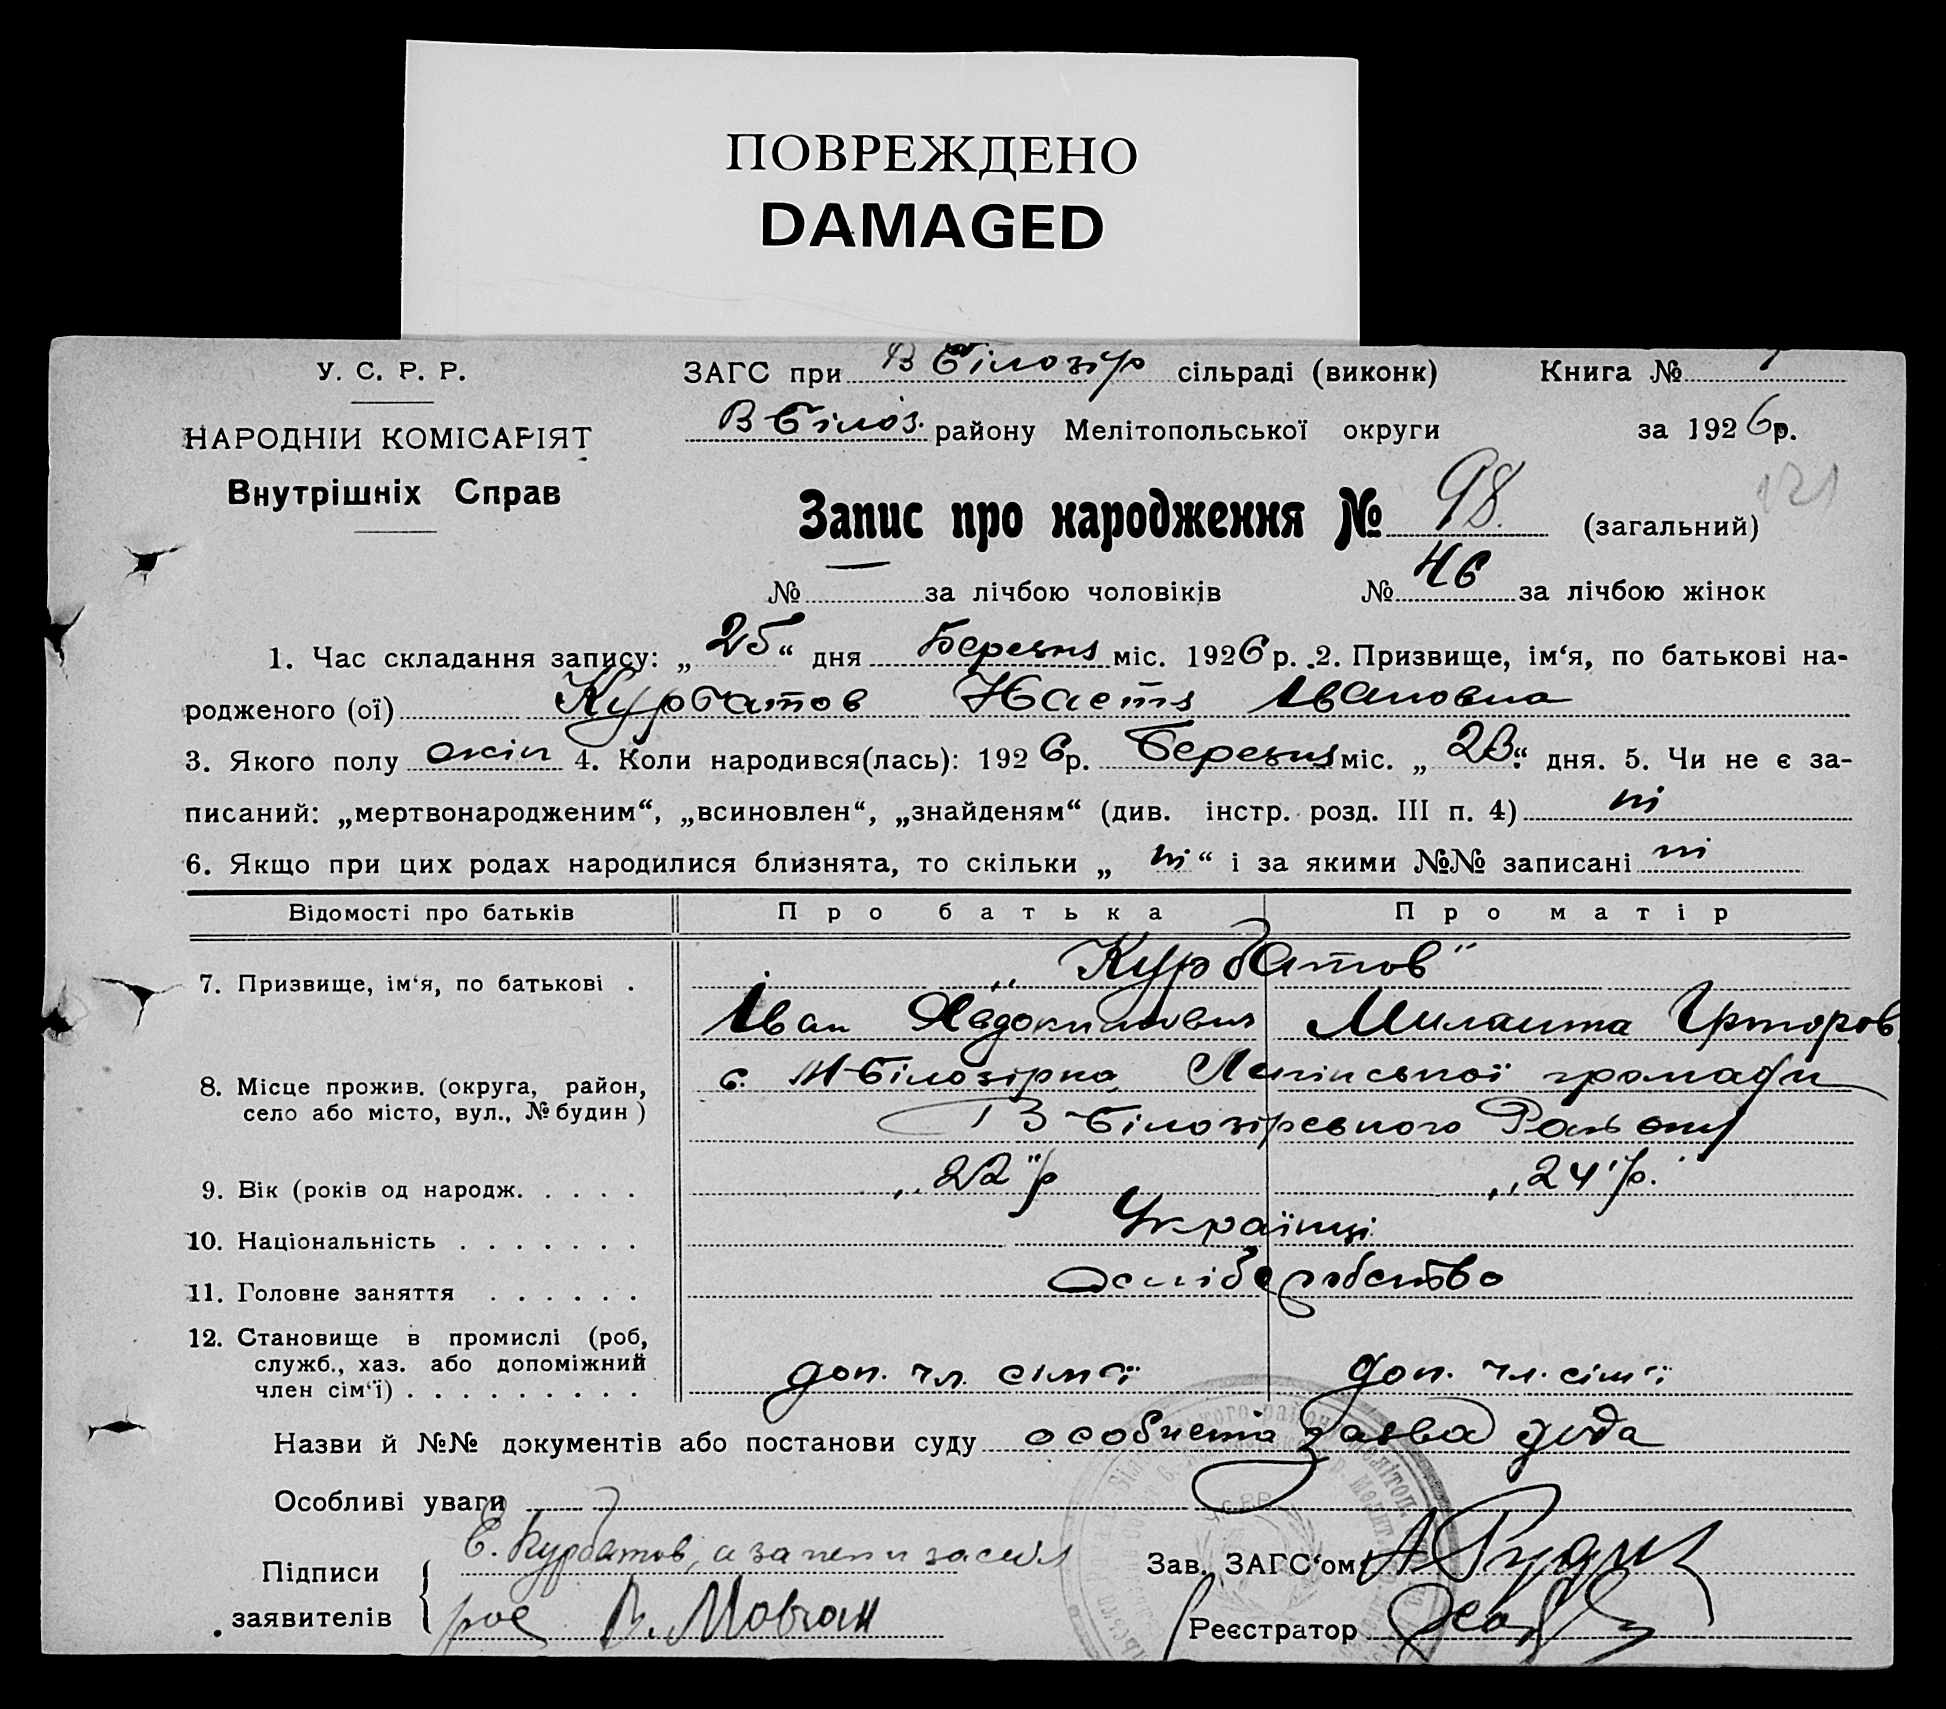 ПОВРЕЖДЕНО
DAMAGED
У. С. Р. Р.
ЗАГС при В Білозір сільраді (виконк) Книга №
В Білоз. району Мелітопольської округи за 1926р.
НАРОДНІЙ КОМІСАРІЯТ
Внутрішніх Справ
121
Запис про народження № 98 (загальний)
№ — за лічбою чоловіків № 46 за лічбою жінок
1. Час складання запису: „25“ дня Березня міс. 1926 р. 2. Призвище, ім‘я, по батькові на-
родженого (ої) Курбатов Настя Івановна
3. Якого полу жін 4. Коли народився(лась): 1926р. Березня міс. „23“ дня. 5. Чи не є за-
писаний: „мертвонародженим“, „всиновлен“, „знайденям“ (див. інстр. розд. III п. 4) ні
6. Якщо при цих родах народилися близнята, то скільки „ні“ і за якими №№ записані ні
Відомості про батьків Про батька Про матір
7. Призвище, ім‘я, по батькові . „Курбатов“
Іван Явдокимович Милашка
8. Місце прожив. (округа, район, с. М-Білозірка Ленінської громади
село або місто, вул., № будин) В Білозірського Району
9. Вік (років од народж. . . . . „22“ р „24“ р.
10. Національність . . . . . . . Українці
11. Головне заняття . . . . . . Осліборобство
12. Становище в промислі (роб,
служб., хаз. або допоміжний
член сім‘ї) . . . . . . . . . доп. чл. сім‘ї доп. чл. сім‘ї
Назви й №№ документів або постанови суду особиста заява діда
Особливі уваги
Підписи Е. Курбатов, а за него
заявителів рос В. Мовчан
Зав. ЗАГС‘ом
Реєстратор